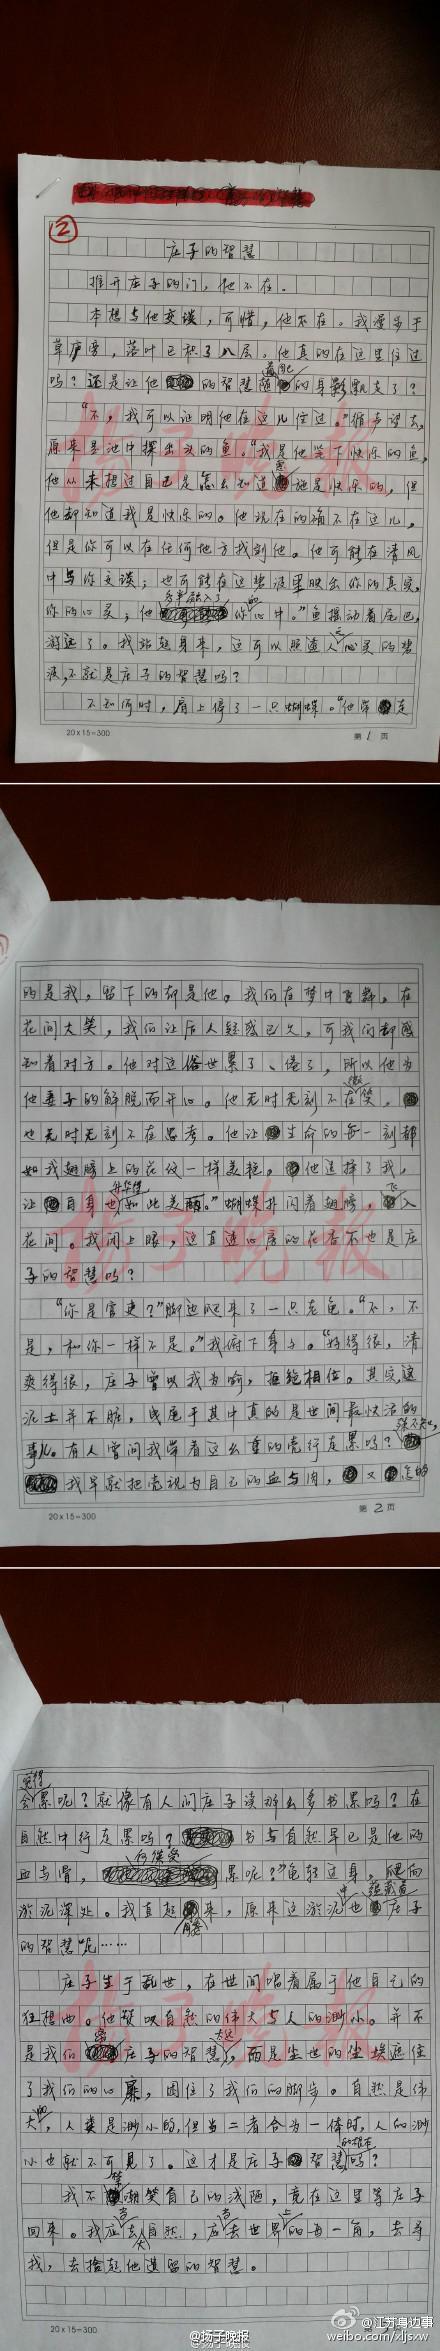 ②
庄子的智慧
推开庄子的门，他不在。
本想与他交谈，可惜，他不在。我漫步于
草庐旁，落叶已积了八层。他真的在这里住过
吗？还是让他的智慧随着他的身影飘走了？
“不，我可以证明他在这儿住过。”循声望去，
原来是池中探出头的鱼。“我是他笔下快乐的鱼，
他从未想过自己是怎么知道鱼是快乐的，但
他却知道我是快乐的。他现在的确不在这儿，
但是你可以在任何地方找到他。他可能在清风
中与你交谈；也可能在这碧波里映出你的真实，
你的心灵；他你的心中。”鱼摆动着尾巴，
游远了。我站起身来，这可以照透人心灵的碧
波，不就是庄子的智慧吗？
不知何时，肩上停了一只蝴蝶。“他带走
20×15=300
第 1 页
的是我，留下的却是他。我们在梦中飞舞，在
花间大笑，我们让后人疑惑已久，可我们却感
知着对方。他对这俗世累了、倦了，所以他为
他妻子的解脱而开心。他无时无刻不在微笑，
也无时无刻不在思考。他让生命的每一刻都
如我翅膀上的花纹一样美艳。他选择了我，
让自身也如此美丽。”蝴蝶扑闪着翅膀，飞入
花间。我闭上眼，这直达心房的花香不也是庄
子的智慧吗？
“你是官吏？”脚边爬来了一只老龟。“不，不
是，和你一样不是。”我俯下身子。“好得很，清
爽得很，庄子曾以我为喻，拒绝相位。其实，这
泥土并不脏，曳尾于其中真的是世间最快活的
事儿。有人曾问我带着这么重的壳行走累吗？殊不知，
我早就把壳视为自己的血与肉，又怎的
20×15=300
第 2 页
会觉得累呢？就像有人问庄子读那么多书累吗？在
自然中行走累吗？书与自然早已是他的
血与骨，何谈受累呢？”龟转过身，爬向
淤泥深处。我直起腰来，原来这淤泥中也蕴藏着庄子
的智慧呢……
庄子生于乱世，在世间唱着属于他自己的
狂想曲。他赞叹自然的伟大与人的渺小。并不
是我们离庄子的智慧太远，而是尘世的尘埃遮住
了我们的心扉，困住了我们的脚步。自然是伟
大的，人类是渺小的，但当二者合为一体时，人的渺
小也就不可见了。这才是庄子智慧的根本吗？
我不禁嘲笑自己的浅陋，竟在这里等庄子
回来。我应去大自然，应去世界上的每一角，去寻
找，去拾起他遗留的智慧。
20×15=300
扬子晚报
@扬子晚报
@江苏身边事
weibo.com/xljsxw